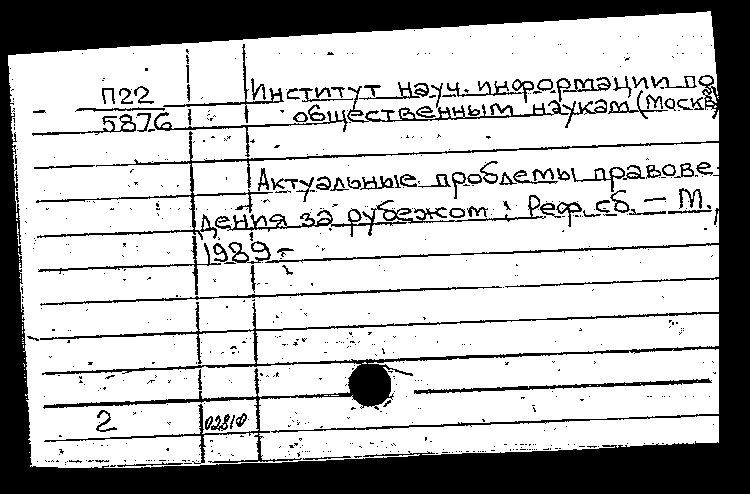 П22
5876
Институт науч. информации по
общественным наукам (Москва)
Актуальные проблемы правове-
дения за рубежом : Реф. сб. — М.,
1989 -
2